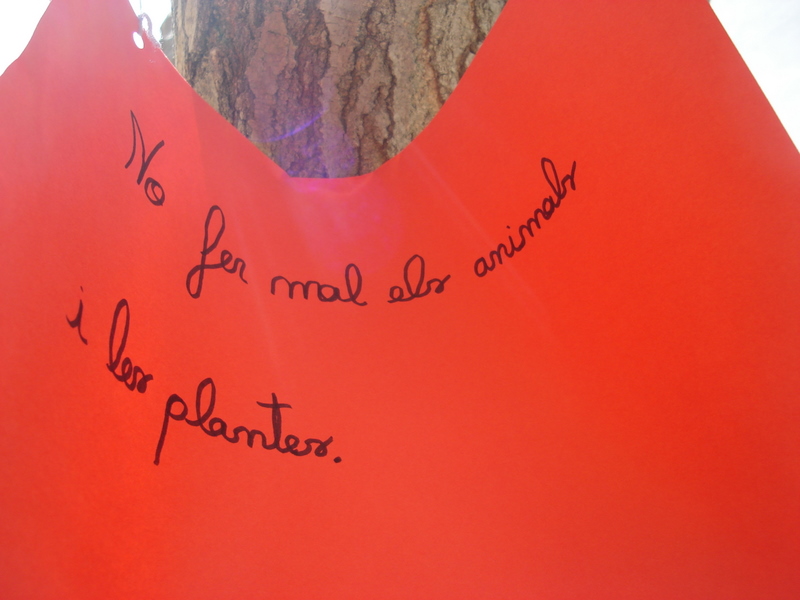 No fer mal els animals
i les plantes.